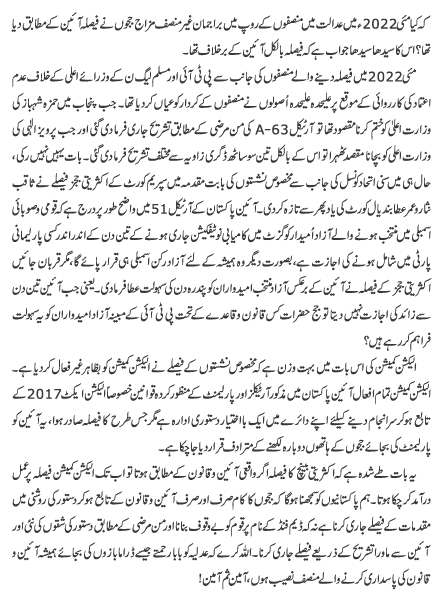 کہ کیا مئی 2022ء میں عدالت میں منصفوں کے روپ میں براجمان غیر منصف مزاج ججوں نے فیصلہ آئین کے مطابق دیا
تھا؟ اس کا سیدھا سیدھا جواب ہے کہ فیصلہ بالکل آئین کے برخلاف تھا۔
مئی 2022 میں فیصلہ دینے والے منصفوں کی جانب سے پی ٹی آئی اور مسلم لیگ ن کے وزرائے اعلی کے خلاف عدم
اعتماد کی کارروائی کے موقع پر علیحدہ علیحدہ اُصولوں نے منصفوں کے کردار کو عیاں کر دیا تھا۔ جب پنجاب میں حمزہ شہباز کی
وزارت اعلیٰ کو ختم کرنا مقصود تھا تو آرٹیکل A-63 کی من مرضی کے مطابق تشریح جاری فرما دی گئی اور جب پرویز الٰہی کی
وزارت اعلیٰ کو بچانا مقصد ٹھہرا تو اس کے بالکل تین سو ساٹھ ڈگری زاویہ سے مختلف تشریح جاری فرما دی گئی۔ بات یہیں نہیں رکی،
حال ہی میں سنی اتحاد کونسل کی جانب سے مخصوص نشستوں کی بابت مقدمہ میں سپریم کورٹ کے اکثریتی ججز فیصلے نے ثاقب
نثار و عمر عطا بندیال کورٹ کی یاد پھر سے تازہ کر دی۔ آئین پاکستان کے آرٹیکل 51 میں واضح طور پر درج ہے کہ قومی و صوبائی
اسمبلی میں منتخب ہونے والے آزاد اُمیدوار کو گزٹ میں کامیابی نوٹیفکیشن جاری ہونے کے تین دن کے اندر اندر کسی پارلیمانی
پارٹی میں شامل ہونے کی اجازت ہے، بصورت دیگر وہ ہمیشہ کے لئے آزاد رکن اسمبلی ہی قرار پائے گا، مگر قربان جائیں
اکثریتی ججز کے فیصلہ نے آئین کے برعکس آزاد منتخب امیدواران کو پندرہ دن کی سہولت عطا فرما دی۔ یعنی جب آئین تین دن
سے زائد کی اجازت نہیں دیتا تو جج حضرات کس قانون و قاعدے کے تحت پی ٹی آئی کے مبینہ آزاد امیدواران کو یہ سہولت
فراہم کر رہے ہیں؟
الیکشن کمیشن کی اس بات میں بہت وزن ہے کہ مخصوص نشستوں کے فیصلے نے الیکشن کمیشن کو بظاہر غیر فعال کر دیا ہے۔
الیکشن کمیشن تمام افعال آئین پاکستان میں مذکور آرٹیکلز اور پارلیمنٹ کے منظور کردہ قوانین خصوصاً الیکشن ایکٹ 2017 کے
تابع ہو کر سرانجام دینے کیلئے اپنے دائرے میں ایک بااختیار دستوری ادارہ ہے مگر جس طرح کا فیصلہ صادر ہوا، یہ آئین کو
پارلیمنٹ کی بجائے ججوں کے ہاتھوں دوبارہ لکھنے کے مترادف قرار دیا جا چکا ہے۔
یہ بات طے شدہ ہے کہ اکثریتی بینچ کا فیصلہ اگر واقعی آئین و قانون کے مطابق ہوتا تو اب تک الیکشن کمیشن فیصلہ پر عمل
درآمد کر چکا ہوتا۔ ہم پاکستانیوں کو سمجھنا ہوگا کہ ججوں کا کام صرف اور صرف آئین و قانون کے تابع ہو کر دستور کی روشنی میں
مقدمات کے فیصلے جاری کرنا ہے نہ کہ ڈیم فنڈ کے نام پر قوم کو بے وقوف بنانا اور من مرضی کے مطابق دستور کی شقوں کی نئی اور
آئین سے ماورا تشریح کے ذریعے فیصلے جاری کرنا۔ اللہ کرے کہ عدلیہ کو بابا رحمتے جیسے ڈرامابازوں کی بجائے ہمیشہ آئین و
قانون کی پاسداری کرنے والے منصف نصیب ہوں، آمین ثم آمین!